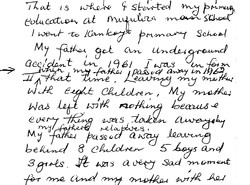 That is where I started my primary
Education at Mufulira main school
I went to Kankoyo primary School
My father get an underground
accident in 1961 I was in form
when my father passed away in 1962
II that time leaving my mother
With Eight Children, My mother
was left with nothing because
every thing was taken away by
my father's relatives.
My father passed away leaving
behind 8 children 5 boys and
3 girls. It was a very sad moment
for me and my mother with her